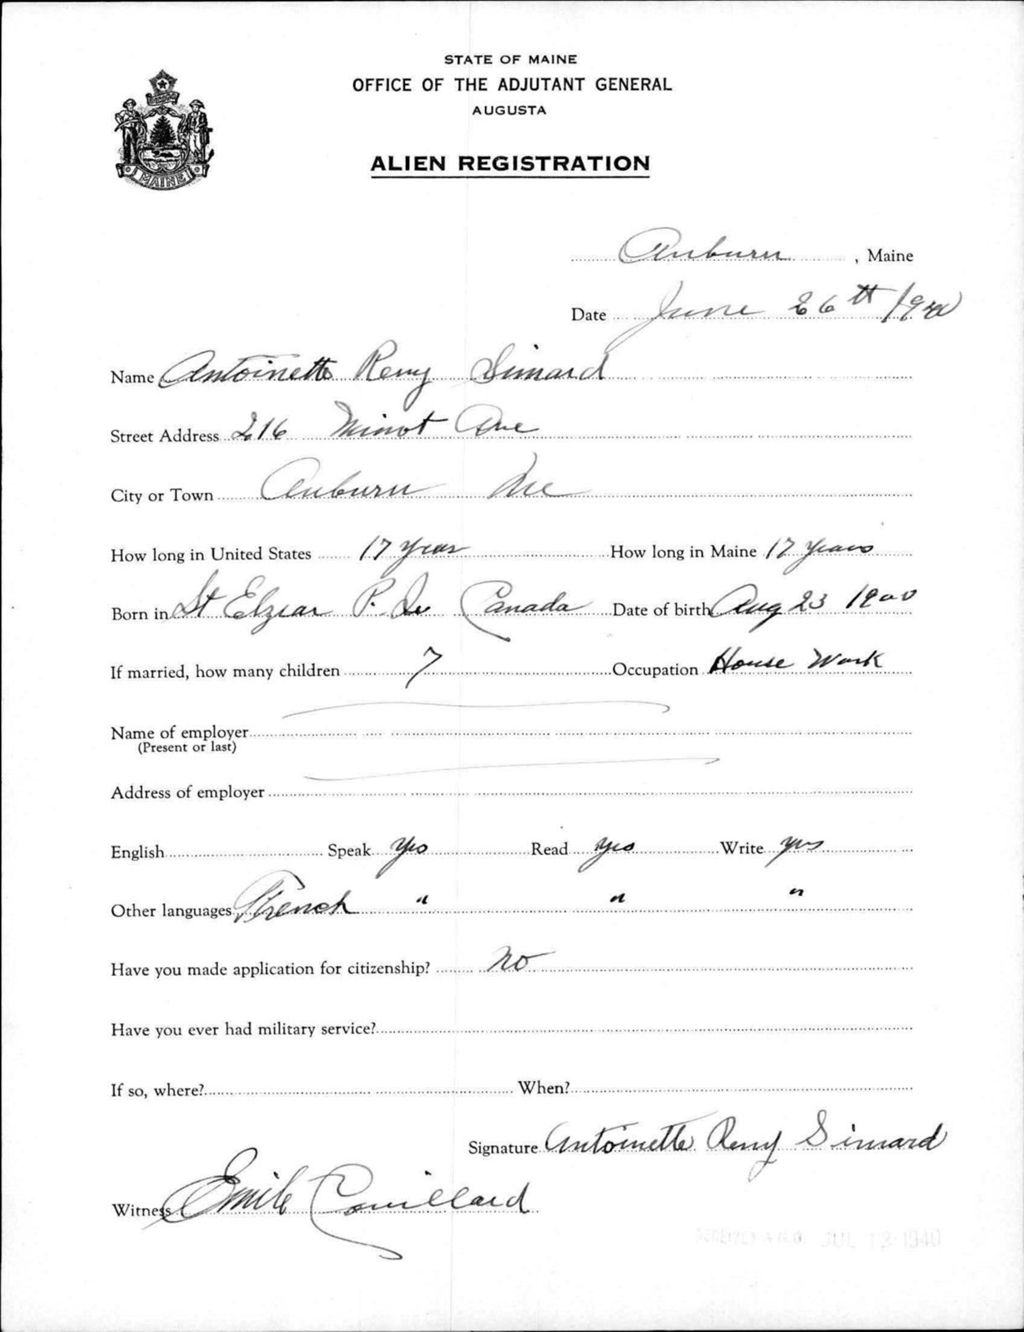 STATE OF MAINE
OFFICE OF THE ADJUTANT GENERAL
AUGUSTA
ALIEN REGISTRATION
MAINE
Auburn, Maine
Date June 26th 1940
Name Antoinette Remy Simard
Street Address 216 Minot Ave
City or Town Auburn Me
How long in United States 17 years How long in Maine 17 years
Born in St Elzear P. Qu Canada Date of birth Aug 23 1900
If married, how many children 7 Occupation House Work
Name of employer
(Present or last)
Address of employer
English Speak yes Read yes Write yes
Other languages French " " "
Have you made application for citizenship? no
Have you ever had military service?
If so, where? When?
Signature Antoinette Remy Simard
Witness Emile Couillard
JUL 12 1940